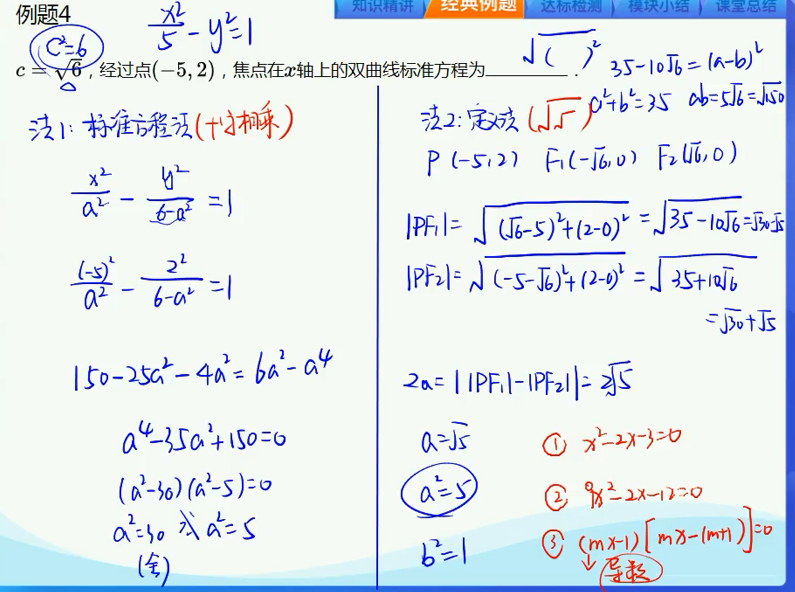 知识精讲 经典例题 达标检测 模块小结 课堂总结
例题4
x²/5 - y² = 1
C²=6
√( )²
35-10√6=(a-b)²
c = √6，经过点(−5, 2)，焦点在x轴上的双曲线标准方程为________．
a²+b²=35 ab=5√6=√150
法1: 标准方程法(十字相乘)
x²/a² - y²/(6-a²) = 1
(-5)²/a² - 2²/(6-a²) = 1
150-25a²-4a²=6a²-a⁴
a⁴-35a²+150=0
(a²-30)(a²-5)=0
a²=30 或 a²=5
(舍)
法2: 定义法(√√)
P(-5,2) F₁(-√6,0) F₂(√6,0)
|PF₁|=√((√6-5)²+(2-0)²)=√(35-10√6)=√30-√5
|PF₂|=√((-5-√6)²+(2-0)²)=√(35+10√6)
=√30+√5
2a=||PF₁|-|PF₂||=2√5
a=√5
a²=5
b²=1
① x²-2x-3=0
② 8x²-2x-12=0
③ (mx-1)[mx-(m+1)]=0
导数